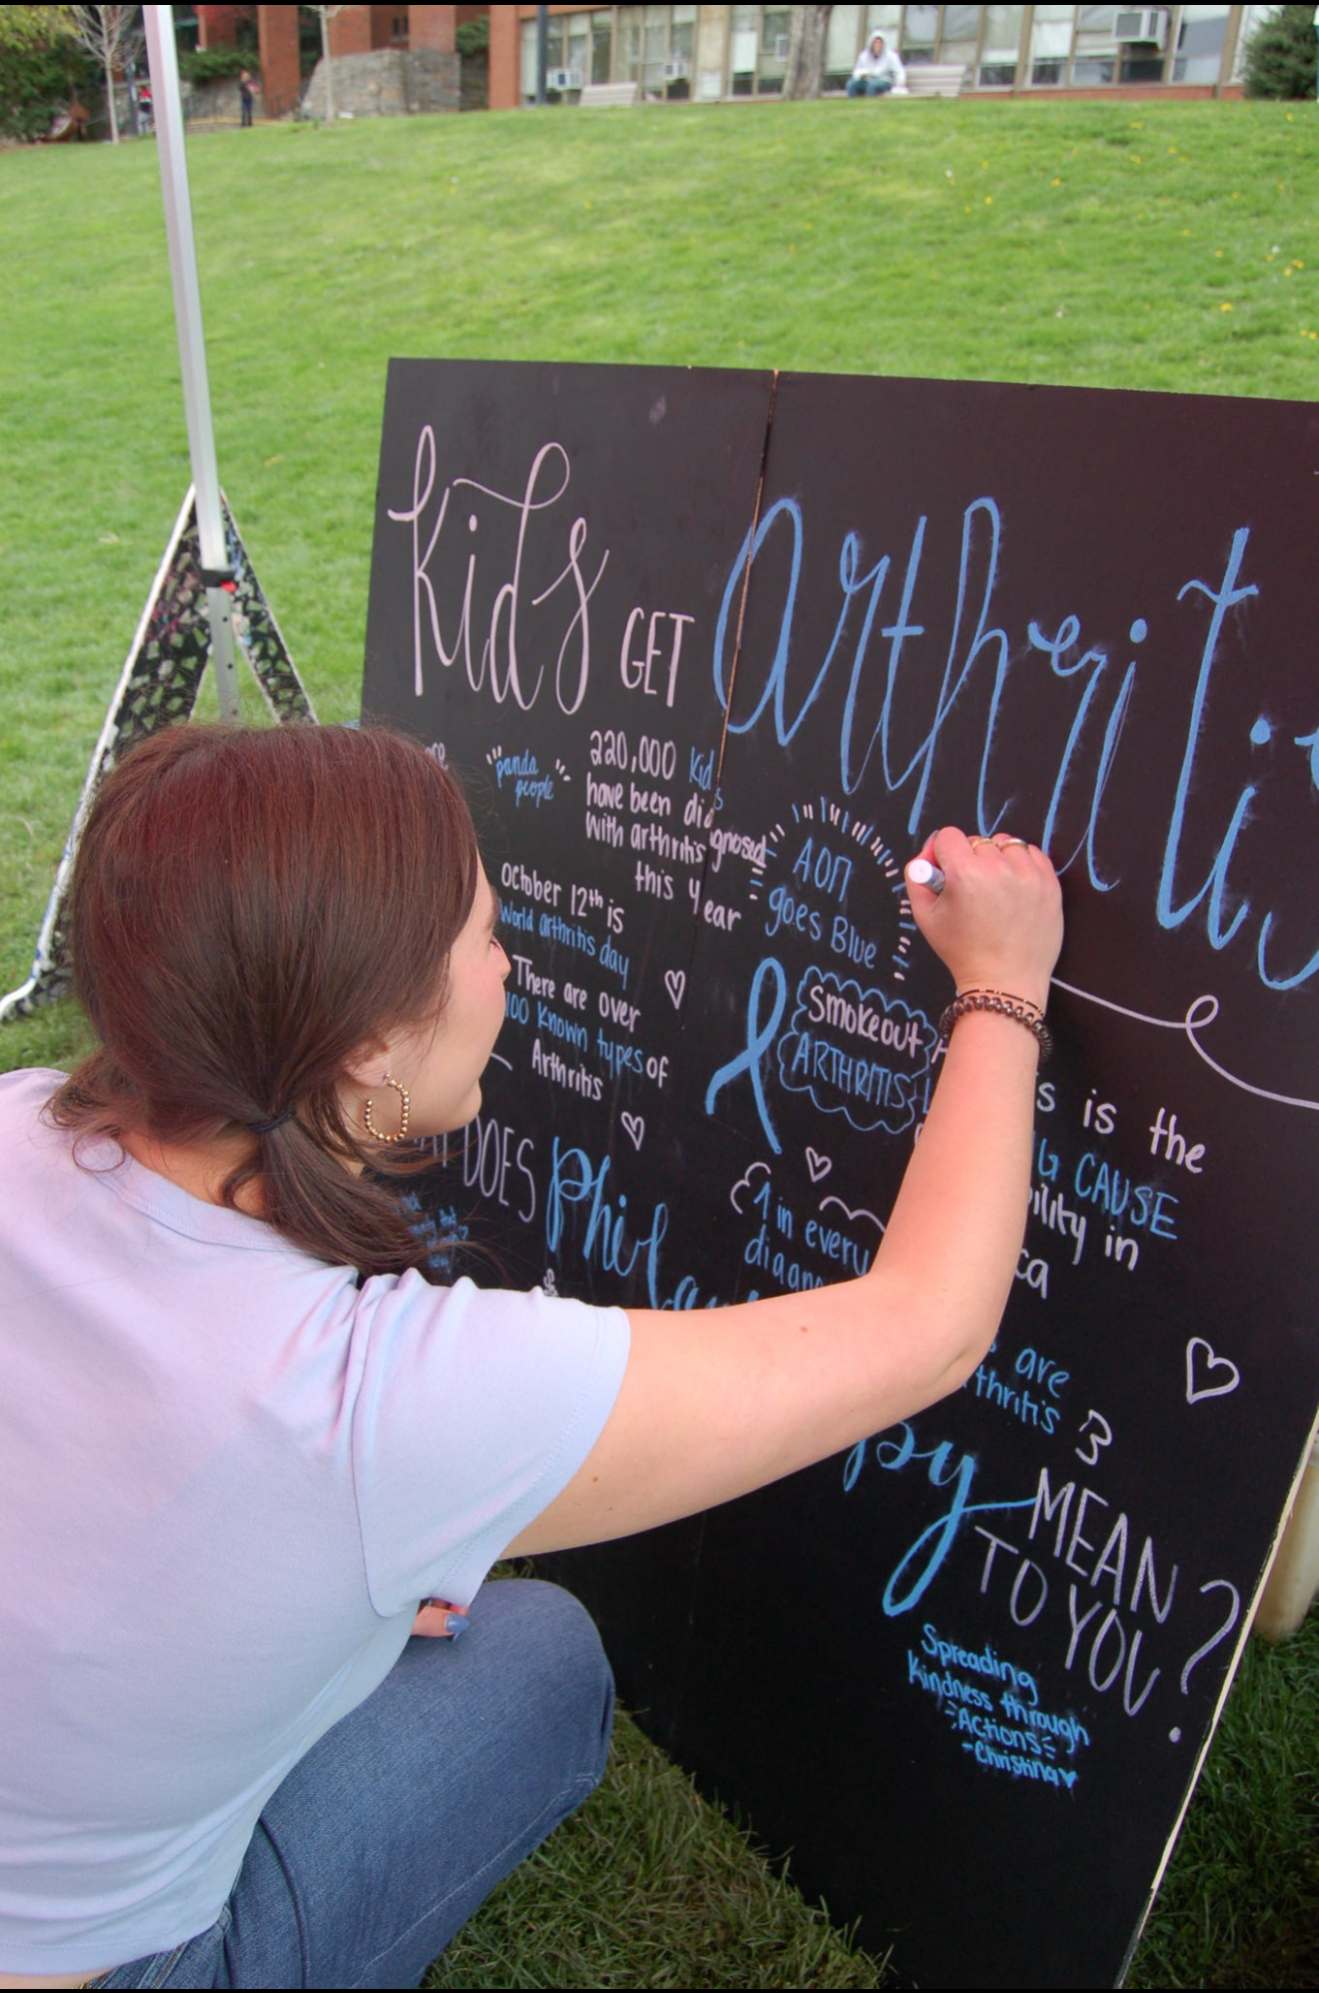 Kids GET arthriti
are
"panda
people"
220,000 kids
have been diagnosed
with arthritis
this year
October 12th is
World arthritis day
There are over
100 known types of
Arthritis
AOΠ
goes Blue
Smokeout
ARTHRITIS
s is the
G CAUSE
bility in
ca
1 in every
are
thritis
DOES Phil
py MEAN
TO YOU?
Spreading
Kindness through
Actions
-Christina